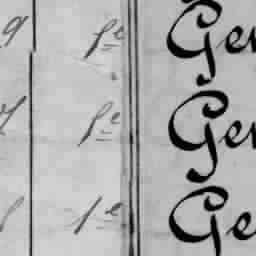 9 fe Ger
7 fe Ger
fe Ge